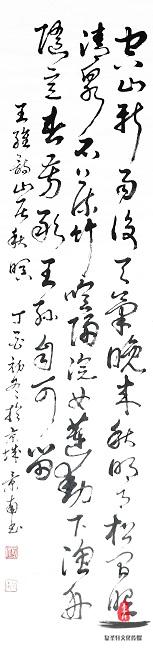 空山新雨後天氣晚來秋明月松間照
清泉石上流竹喧歸浣女蓮動下漁舟
隨意春芳歇王孫自可留
王維詩山居秋暝 丁酉初冬於京城景南書